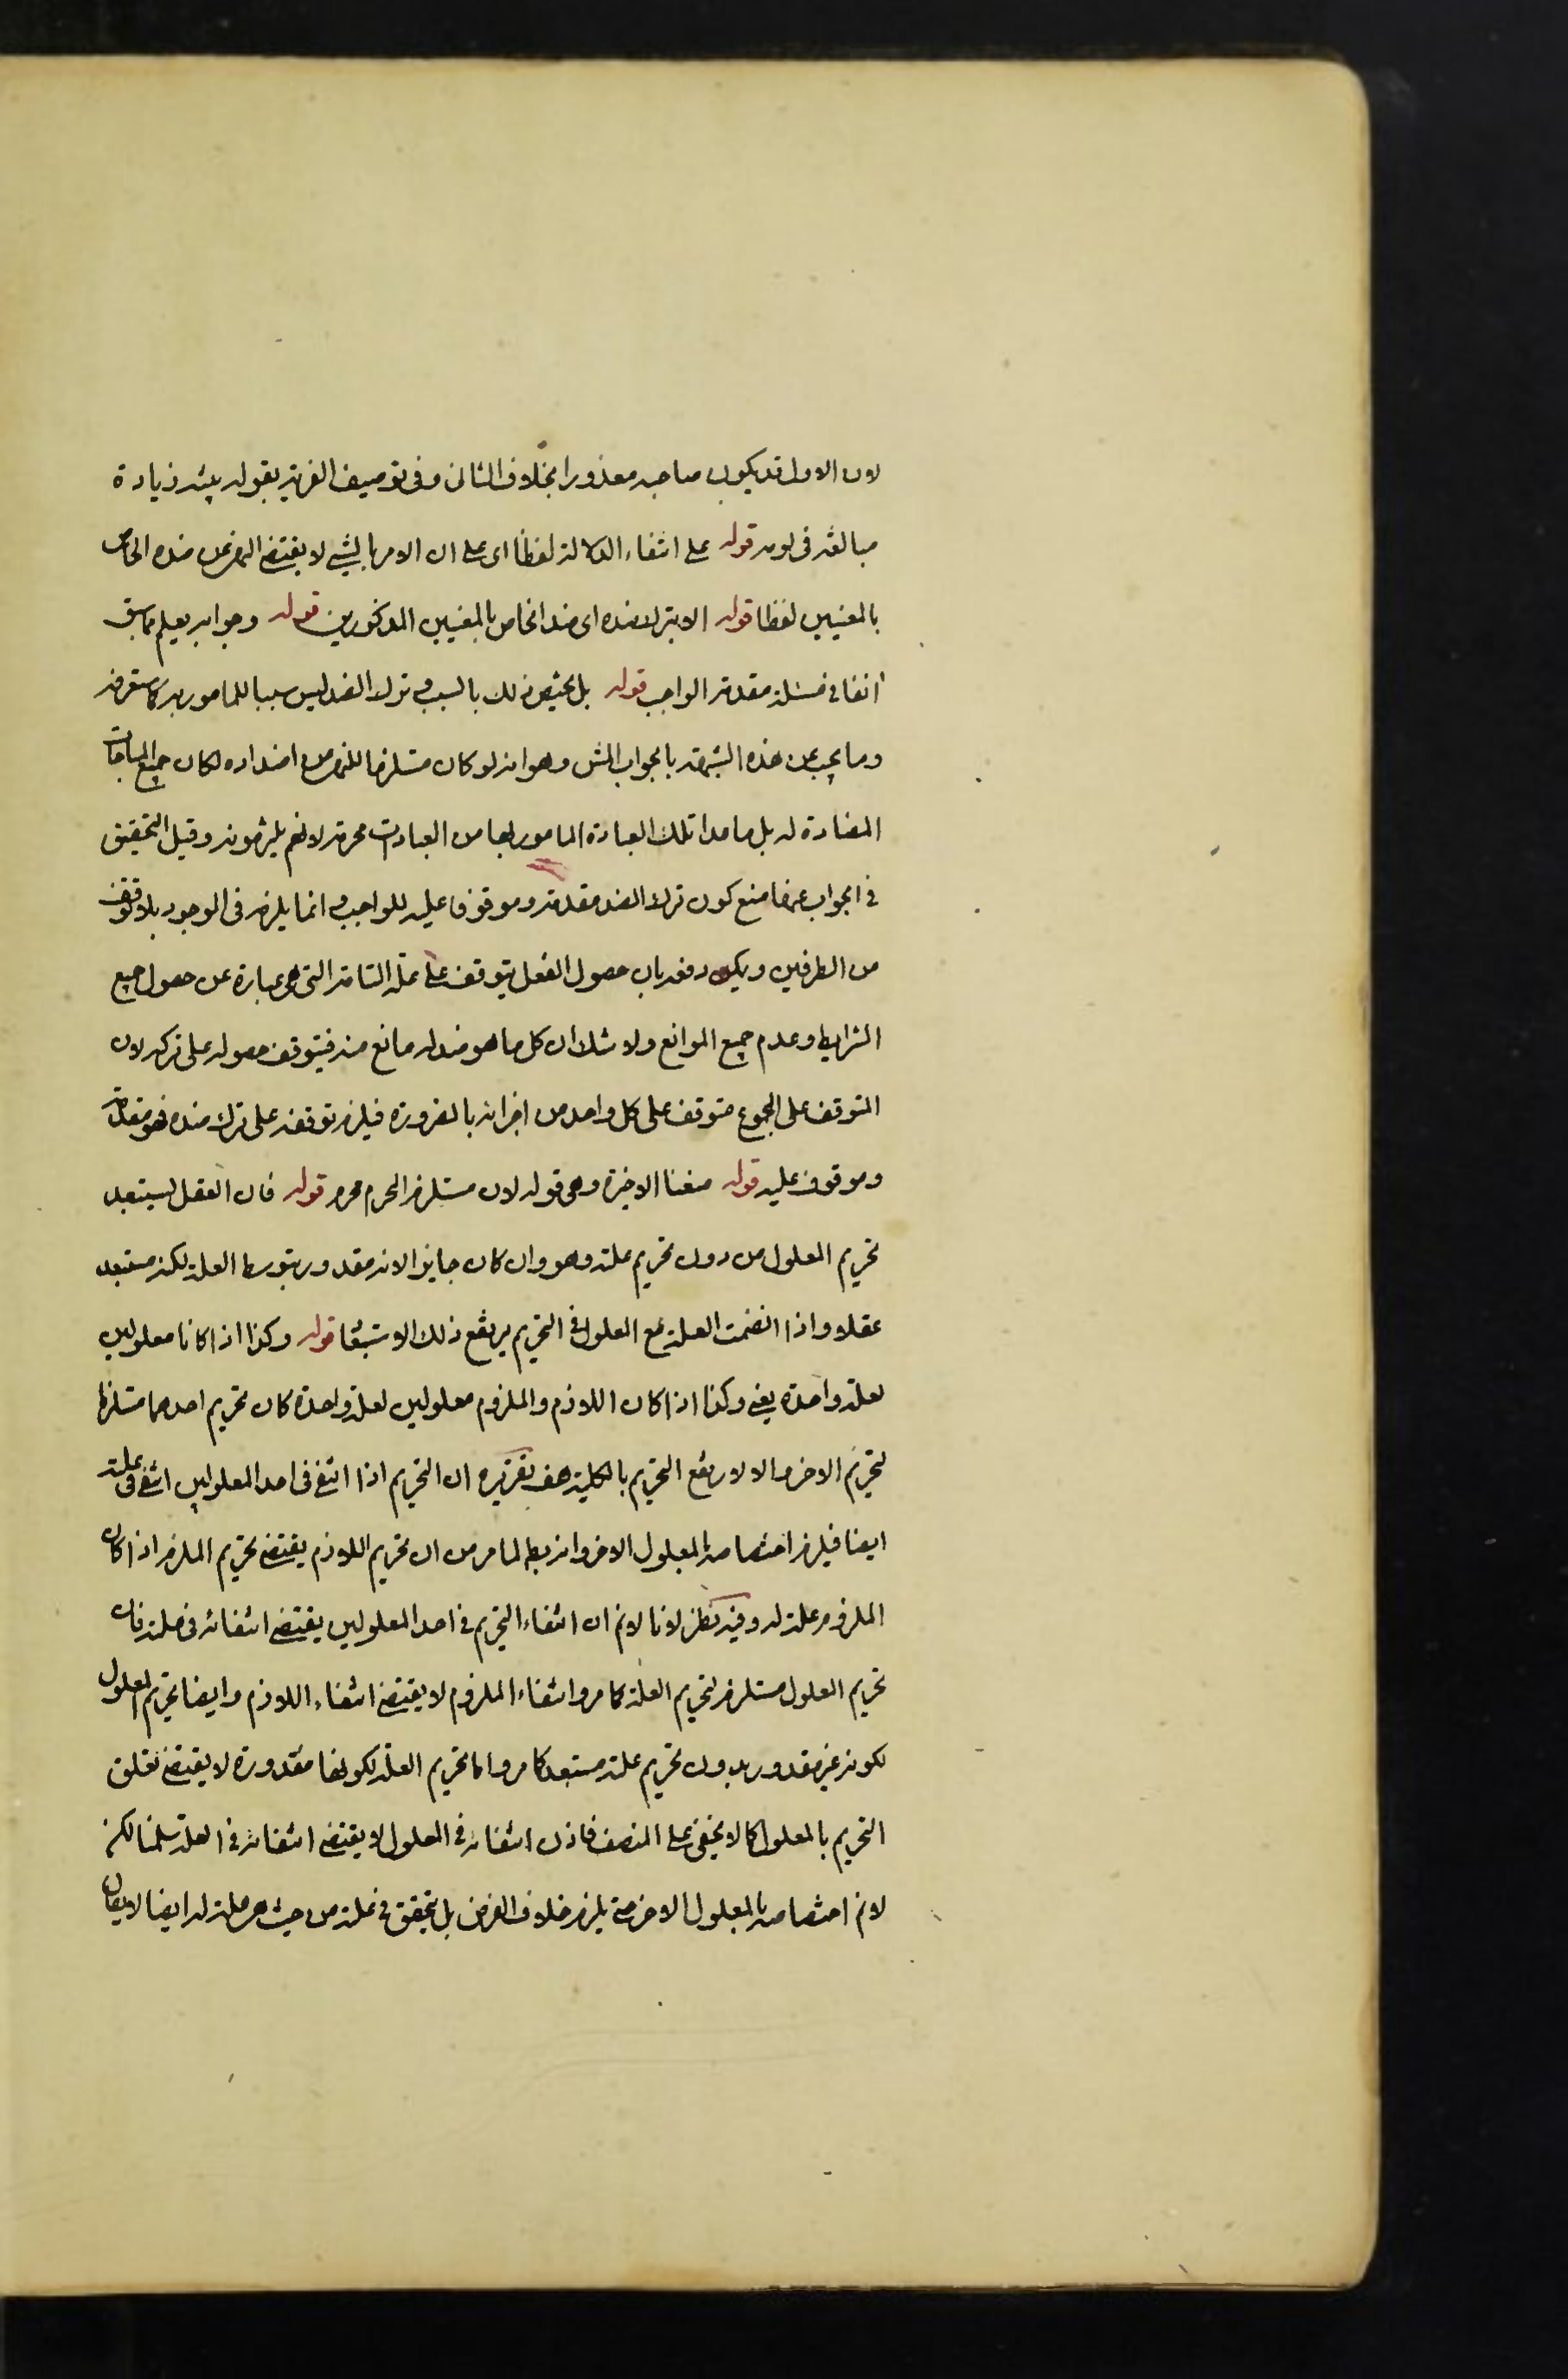 لان الاول قد يكون صاحبه معذورا بخلاف الثانى وفى توصيف الفرية بقوله بينة زيادة
مبالغة فى لومه قوله على انتفاء الدلالة لفظا اى على ان الامر بالشئ لا يقتضى النهى عن ضده الخاص
بالمعنيين لفظا قوله الا بترك ضده اى ضد الخاص بالمعنيين المذكورين قوله وجوابه يعلم مما سبق
آنفا فى مسئلة مقدمة الواجب قوله بل يختص ذلك بالسبب و ترك الضد ليس سببا للمامور به كما ستعرفه
وما يجب عن هذه الشبهة بالجواب المش وهو انه لو كان مستلزما للنهى عن اضداده لكان جميع المباحات
المضادة له بل ما عدا تلك العبادة المامور بها من العبادات محرمة لانهم يلتزمونه وقيل التحقيق
فى الجواب عنها منع كون ترك الضد مقدمة وموقوفا عليه للواجب و انما يلزمه فى الوجود بلا توقف
من الطرفين ويمكن دفعه بان حصول الفعل يتوقف على علته التامة التى هى عبارة عن حصول جميع
الشرايط وعدم جميع الموانع ولا شك ان كل ما هو ضد له مانع منه فيتوقف حصوله على تركه لان
المتوقف على المجموع متوقف على كل واحد من اجزائه بالضرورة فيلزم توقفه على ترك ضده فهو مقدمة
وموقوف عليه قوله منعنا الاخيرة وهى قوله لان مستلزم المحرم محرم قوله فان العقل يستبعد
تحريم المعلول من دون تحريم علته وهو وان كان جايزا لانه مقدور بتوسط العلة لكنه مستبعد
عقلا واذا انضمت العلة مع المعلول فى التحريم يرتفع ذلك الاستبعاد قوله وكذا اذا كانا معلولين
لعلة واحدة يعنى وكذا اذا كان اللازم والملزوم معلولين لعلة واحدة كان تحريم احدهما مستلزما
لتحريم الاخر والا لارتفع التحريم بالكلية هف تقريره ان التحريم اذا انتفى فى احد المعلولين انتفى فى علته
ايضا فيلزم اختصاصه بالمعلول الاخر وانه بط لما مر من ان تحريم اللازم يقتضى تحريم الملزم اذا كان
الملزوم علة له وفيه نظر لانا لانم ان انتفاء التحريم فى احد المعلولين يقتضى انتفائه فى علته فان
تحريم المعلول مستلزم لتحريم العلة كما مر وانتفاء الملزوم لا يقتضى انتفاء اللازم وايضا تحريم المعلول
لكونه غير مقدور بدون تحريم علته مستبعد كما مر واما تحريم العلة لكونها مقدورة لا يقتضى تعلق
التحريم بالمعلول كما لا يخفى على المنصف فاذن انتفائه فى المعلول لا يقتضى انتفائه فى العلة سلمنا لكنه
لانم اختصاصه بالمعلول الاخر حتى يلزم خلاف الفرض بل يتحقق فى علته من حيث هى علة له ايضا لا يقال